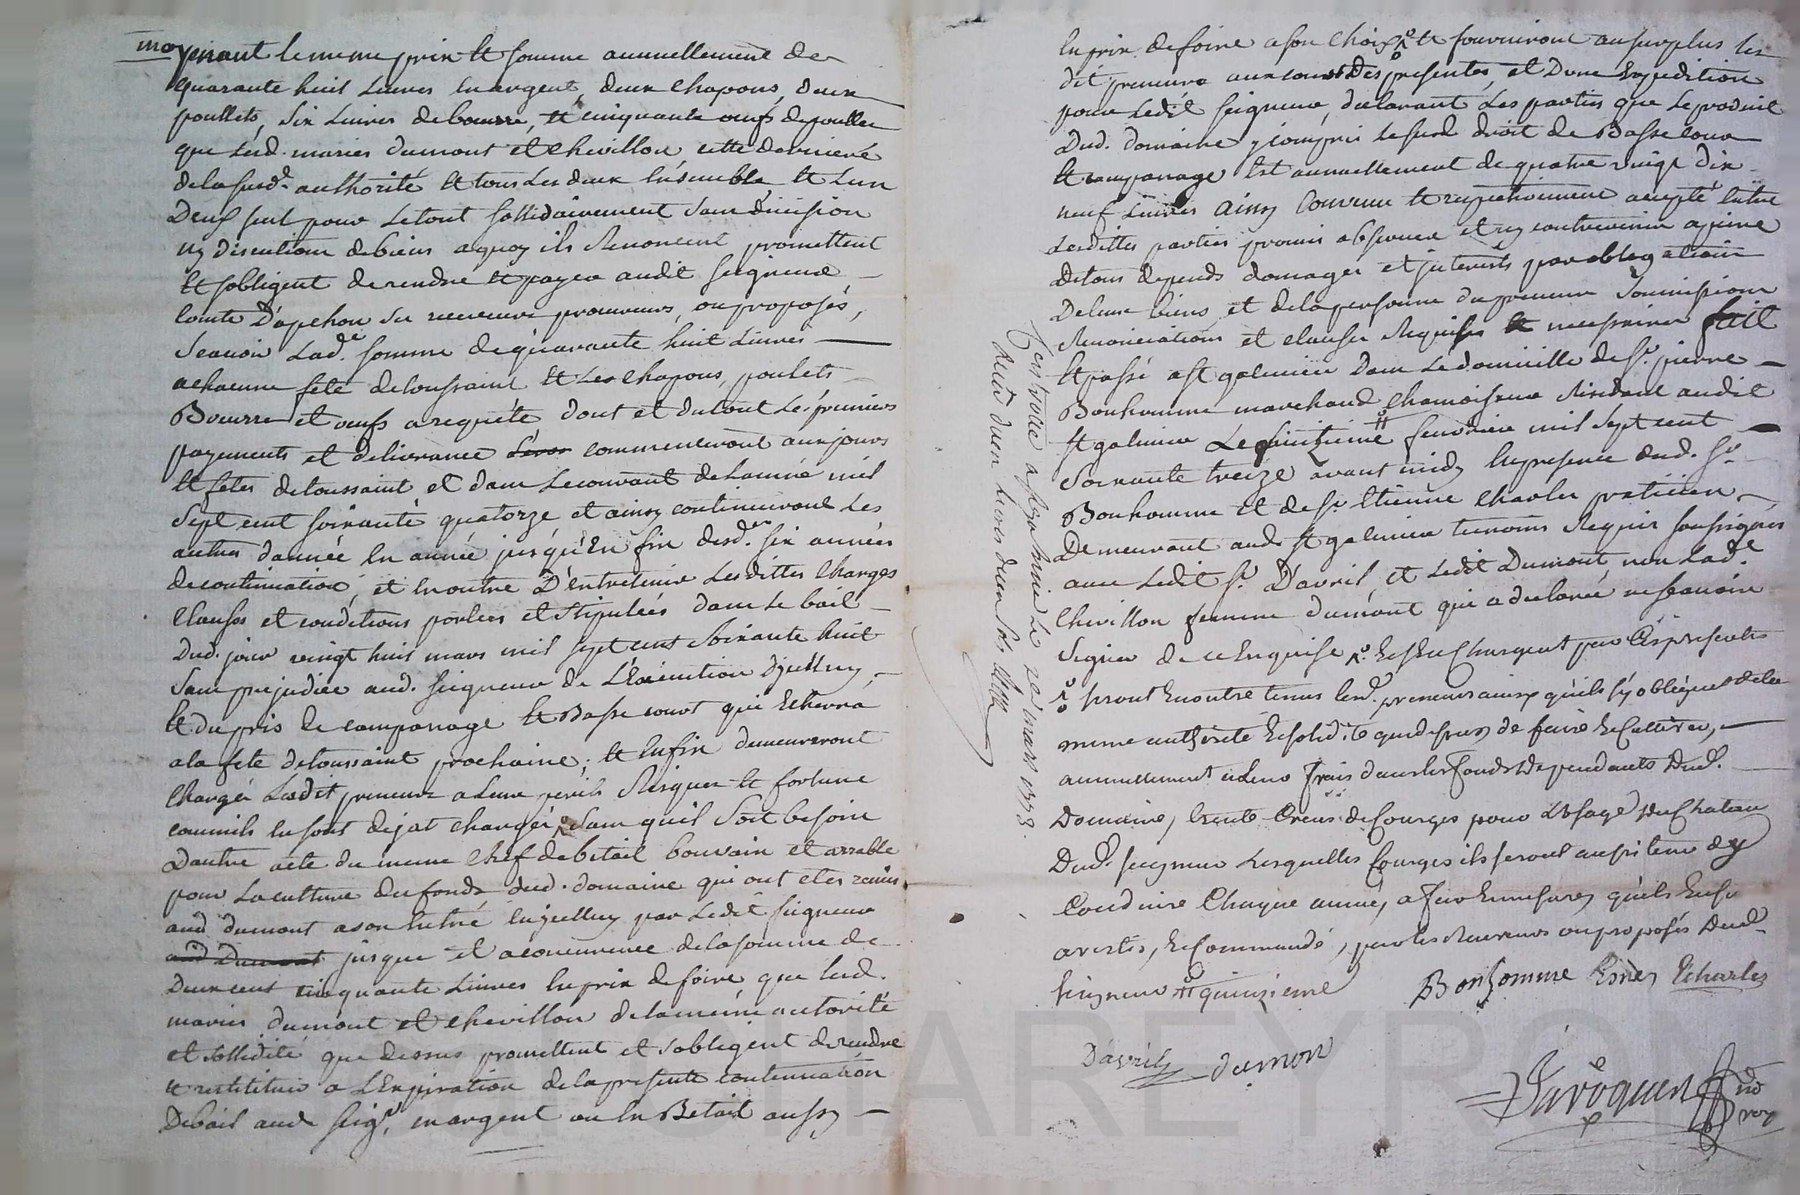 moyenant le meme prix et somme annuellement de
quarante huit Livres en argent, deux chapons, deux
poullets, six Livres de beurre, et cinquante oeufs de poulles
que lesd. mariés dumont et chevillon cette derniere
de la susd.e authorité et tous Les deux ensemble et L'un
D'eux seul pour Le tout sollidairement sans division
ny discution de biens a quoy ils Renoncent promettent
et s'obligent de rendre et payer audit seigneur
Comte D'apchon ses receveurs procureurs, ou proposés,
Scavoir Lad.e somme de quarante huit Livres
a chacune fete de toussaint et Les chapons, poulets
Beurre et oeufs a requête, dont et du tout Les premiers
payements et delivrance commenceront aux jours
et fetes de toussaint et dans Le courant de L'année mil
Sept cent soixante quatorze et ainsy continueront Les
autres d'année en année jusqu'En fin desd. six années
de continuation, et en outre D'entretenir Lesdittes charges
Clauses et conditions portées et stipulées dans Le bail
Dud. jour vingt huit mars mil sept cent soixante huit
Sans prejudice aud. seigneur de L'Execution d'jcelluy,
et du prix de campanage et Basse court qui Echerra
a la fete de toussaint prochaine; et Enfin demeureront
chargés Lesdit preneurs a Leurs perils Risques et fortune
comme ils en sont dejat chargés, sans qu'il soit besoin
D'autre acte du meme chef de betail bouvain et arrable
pour La culture des fonds dud. domaine qui ont etes remis
aud dumont a son entrée en jcelluy par Ledit seigneur
aud Dumont jusque et a concurrence de la somme de
Deux cent cinquante Livres en prix de foire que lesd.
mariés dumont et chevillon de la meme autorité
et sollidité que dessus promettent et s'obligent de rendre
et restituer a L'Expiration de la presente continuation
De bail aud seigr, en argent ou en Betail aussy
En prix de foire a son choix et fourniront au surplus les
dit preneurs aux cout Des presentes, et D'une Expedition
pour Ledit seigneur, declarant Les parties que Le produit
Dud. domaine y compris le susd. droit de Basse cour
et campanage Est annuellement de quatre vingt dix
neuf Livres ainsy Convenu et respectivement accepté Entre
Lesdittes parties promis observer et n'y contrevenir a peine
de tous depends domages et jnterests par obligation
De leurs biens et de la personne du preneur Soumissions
Renonciations et clauses Requises et necessaires fait
et passé a st galmier dans Le domicille de sr. pierre
Bonhomme marchand chamoiseur Residant audit
st galmier Le fevrier mil sept cent
Soixante treize avant midy En presence dud. sr.
Bonhomme et de sr. Etienne Charles praticien
Demeurant aud. st galmier temoins Requis soussignés
avec Ledit sr. D'avril, et Ledit Dumont, non Lad.e
Chevillon femme dumont qui a declarée ne scavoir
Signer de ce Enquise et se chargent par les presentes
seront En outre tenus lesd. preneurs ainsy qu'ils s'y obligent de la
meme authorité et solidité que dessus de faire et cultiver,
annuellement a leurs frais dans les fonds dependants Dud.
Domaine, trente Creus de Courges pour L'usage Du chateau
Dud. seigneur Lesquelles Courges ils seront aussi tenus d'y
Conduire Chaque année, a fur et mesure, qu'ils En seront
avertis, et Commandé, par les Receveurs ou proposés Dud.
seigneur quinzieme
Bonhomme Esnes Echarles
D'avril dumon
Controllé a st galmier Le 22 mars 1773.
Reçu